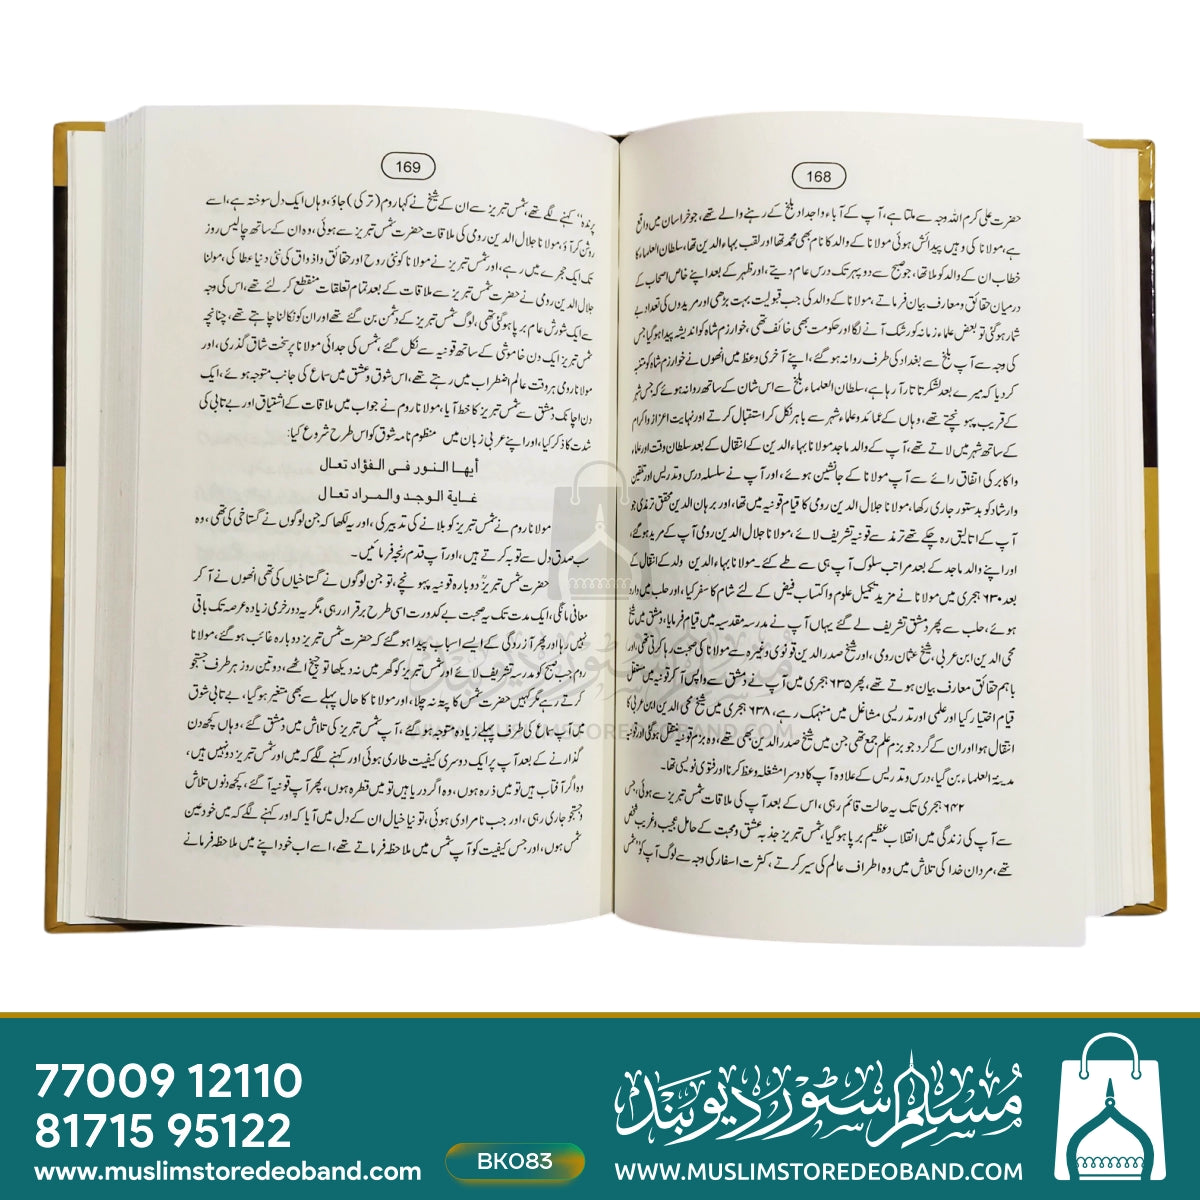 168
حضرت علی کرم اللہ وجہ سے ملتا ہے، آپ کے آباء واجداد بلخ کے رہنے والے تھے، جو خراسان میں واقع
ہے، مولانا کی وہیں پیدائش ہوئی مولانا کے والد کا نام بھی محمد تھا اور لقب بہاء الدین تھا، سلطان العلماء کا
خطاب ان کے والد کو ملا تھا، جو صبح سے دو پہر تک درس عام دیتے، اور ظہر کے بعد اپنے خاص اصحاب کے
درمیان حقائق ومعارف بیان فرماتے، مولانا کے والد کی جب قبولیت بہت بڑھی اور مریدوں کی تعداد بے
شمار ہوگئی تو بعض علماء زمانہ کو رشک آنے لگا اور حکومت بھی خائف تھی، خوارزم شاہ کو اندیشہ پیدا ہوگیا جس
کی وجہ سے آپ بلخ سے بغداد کی طرف روانہ ہوگئے، اپنے آخری وعظ میں انھوں نے خوارزم شاہ کو متنبہ
کردیا کہ میرے بعد لشکر تاتار آرہا ہے، سلطان العلماء بلخ سے اس شان کے ساتھ روانہ ہوئے کہ جس شہر
کے قریب پہونچتے تھے، وہاں کے عمائد وعلماء شہر سے باہر نکل کر استقبال کرتے اور نہایت اعزاز واکرام
کے ساتھ شہر میں لاتے تھے، آپ کے والد ماجد مولانا بہاء الدین کے انتقال کے بعد سلطان وقت اور علماء
واکابر کی اتفاق رائے سے آپ مولانا کے جانشین ہوئے، اور آپ نے سلسلہ درس وتدریس اور تلقین
وارشاد کو بدستور جاری رکھا، مولانا جلال الدین رومی کا قیام قونیہ میں تھا، اور برہان الدین محقق ترمذی جو
آپ کے اتالیق رہ چکے تھے ترمذ سے قونیہ تشریف لائے، مولانا جلال الدین رومی آپ کے مرید ہوگئے،
اور اپنے والد ماجد کے بعد مراتب سلوک آپ ہی سے طے کئے۔ مولانا بہاء الدین ولد کے انتقال کے
بعد ۶۳۰ ہجری میں مولانا نے مزید تکمیل علوم واکتساب فیض کے لئے شام کا سفر کیا، اور حلب میں وارد
ہوئے، حلب سے پھر دمشق تشریف لے گئے یہاں آپ نے مدرسہ مقدسیہ میں قیام فرمایا، دمشق میں شیخ
محی الدین ابن عربی، شیخ عثمان رومی، اور شیخ صدر الدین قونوی وغیرہ سے مولانا کی صحبت رہا کرتی تھی، اور
باہم حقائق معارف بیان ہوتے تھے، پھر ۶۳۵ ہجری میں آپ نے دمشق سے واپس آکر قونیہ میں مستقل
قیام اختیار کیا اور علمی اور تدریسی مشاغل میں منہمک رہے، ۶۳۸ ہجری میں شیخ محی الدین ابن عربی کا
انتقال ہوا اور ان کے گرد جو بزم علم جمع تھی جن میں شیخ صدر الدین بھی تھے، وہ بزم قونیہ منتقل ہوگئی اور قونیہ
مدینۃ العلماء بن گیا، درس وتدریس کے علاوہ آپ کا دوسرا مشغلہ وعظ کرنا اور فتویٰ نویسی تھا۔
۶۴۲ ہجری تک یہ حالت قائم رہی، اس کے بعد آپ کی ملاقات شمس تبریز سے ہوئی، جس
سے آپ کی زندگی میں انقلاب عظیم برپا ہوگیا، شمس تبریز جذبہ عشق ومحبت کے حامل عجیب وغریب شخص
تھے، مردان خدا کی تلاش میں وہ اطراف عالم کی سیر کرتے، کثرت اسفار کی وجہ سے لوگ آپ کو "شمس
169
پرندہ" کہنے لگے تھے، شمس تبریز سے ان کے شیخ نے کہا روم (ترکی) جاؤ، وہاں ایک دل سوختہ ہے، اسے
روشن کر آؤ، مولانا جلال الدین رومی کی ملاقات حضرت شمس تبریز سے ہوئی، وہ ان کے ساتھ چالیس روز
تک ایک حجرے میں رہے، اور شمس تبریز نے مولانا کو نئی روح اور حقائق واذواق کی نئی دنیا عطا کی، مولنا
جلال الدین رومی نے حضرت شمس تبریز سے ملاقات کے بعد تمام تعلقات منقطع کرلئے تھے، اس کی وجہ
سے ایک شورش عام برپا ہوگئی تھی، لوگ شمس تبریز کے دشمن بن گئے تھے اور ان کو نکالنا چاہتے تھے، چنانچہ
شمس تبریز ایک دن خاموشی کے ساتھ قونیہ سے نکل گئے، شمس کی جدائی مولانا پر سخت شاق گذری، اور
مولانا رومی ہر وقت عالم اضطراب میں رہتے تھے، اس شوق وعشق میں سماع کی جانب متوجہ ہوئے، ایک
دن اچانک دمشق سے شمس تبریز کا خط آیا، مولانا روم نے جواب میں ملاقات کے اشتیاق اور بے تابی کی
شدت کا ذکر کیا، اور اپنے عربی زبان میں منظوم نامہ شوق کو اس طرح شروع کیا:
أيها النور فى الفؤاد تعال
غاية الوجد والمراد تعال
مولانا روم نے شمس تبریز کو بلانے کی تدبیر کی، اور یہ لکھا کہ جن لوگوں نے گستاخی کی تھی، وہ
سب صدق دل سے توبہ کرتے ہیں، اور آپ قدم رنجہ فرمائیں۔
حضرت شمس تبریزؒ دوبارہ قونیہ پہونچے، تو جن لوگوں نے گستاخیاں کی تھی انھوں نے آکر
معافی مانگی، ایک مدت تک یہ صحبت بے کدورت اسی طرح برقرار رہی، مگر یہ دور خرمی زیادہ عرصہ تک باقی
نہیں رہا اور پھر آزردگی کے ایسے اسباب پیدا ہوگئے کہ حضرت شمس تبریز دوبارہ غائب ہوگئے، مولانا
روم جب صبح کو مدرسہ تشریف لائے اور شمس تبریز کو گھر میں نہ دیکھا تو چیخ اٹھے، دو تین روز ہر طرف جستجو
کرتے رہے مگر کہیں حضرت شمس کا پتہ نہ چلا، اور مولانا کا حال پہلے سے بھی متغیر ہوگیا، بے تابی شوق
میں آپ سماع کی طرف پہلے زیادہ متوجہ ہوگئے، آپ شمس تبریز کی تلاش میں دمشق گئے، وہاں کچھ دن
گذارنے کے بعد آپ پر ایک دوسری کیفیت طاری ہوئی اور کہنے لگے کہ میں اور شمس تبریز دو نہیں ہیں،
وہ اگر آفتاب ہیں تو میں ذرہ ہوں، وہ اگر دریا ہیں تو میں قطرہ ہوں، پھر آپ قونیہ آگئے، کچھ دنوں تلاش
وجستجو جاری رہی، اور جب نامرادی ہوئی، تو نیا خیال ان کے دل میں آیا کہ اور کہنے لگے کہ میں خود عین
شمس ہوں، اور جس کیفیت کو آپ شمس میں ملاحظہ فرماتے تھے، اسے اب خود اپنے میں ملاحظہ فرمانے
مسلم سٹور دیوبند
WWW.MUSLIMSTOREDEOBAND.COM
77009 12110
81715 95122
www.muslimstoredeoband.com
BK083
مسلم سٹور دیوبند
WWW.MUSLIMSTOREDEOBAND.COM